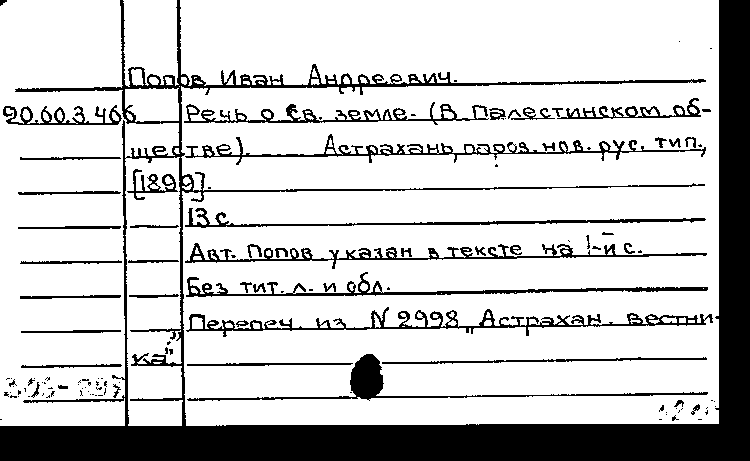 Попов, Иван Андреевич.
20.60.3.466 Речь о Св. земле. (В Палестинском об-
ществе). Астрахань, паров. нов. рус. тип.,
[1899].
13 с.
Авт. Попов указан в тексте на 1-й с.
Без тит. л. и обл.
Перепеч. из N 2998 „Астрахан. вестни-
ка".